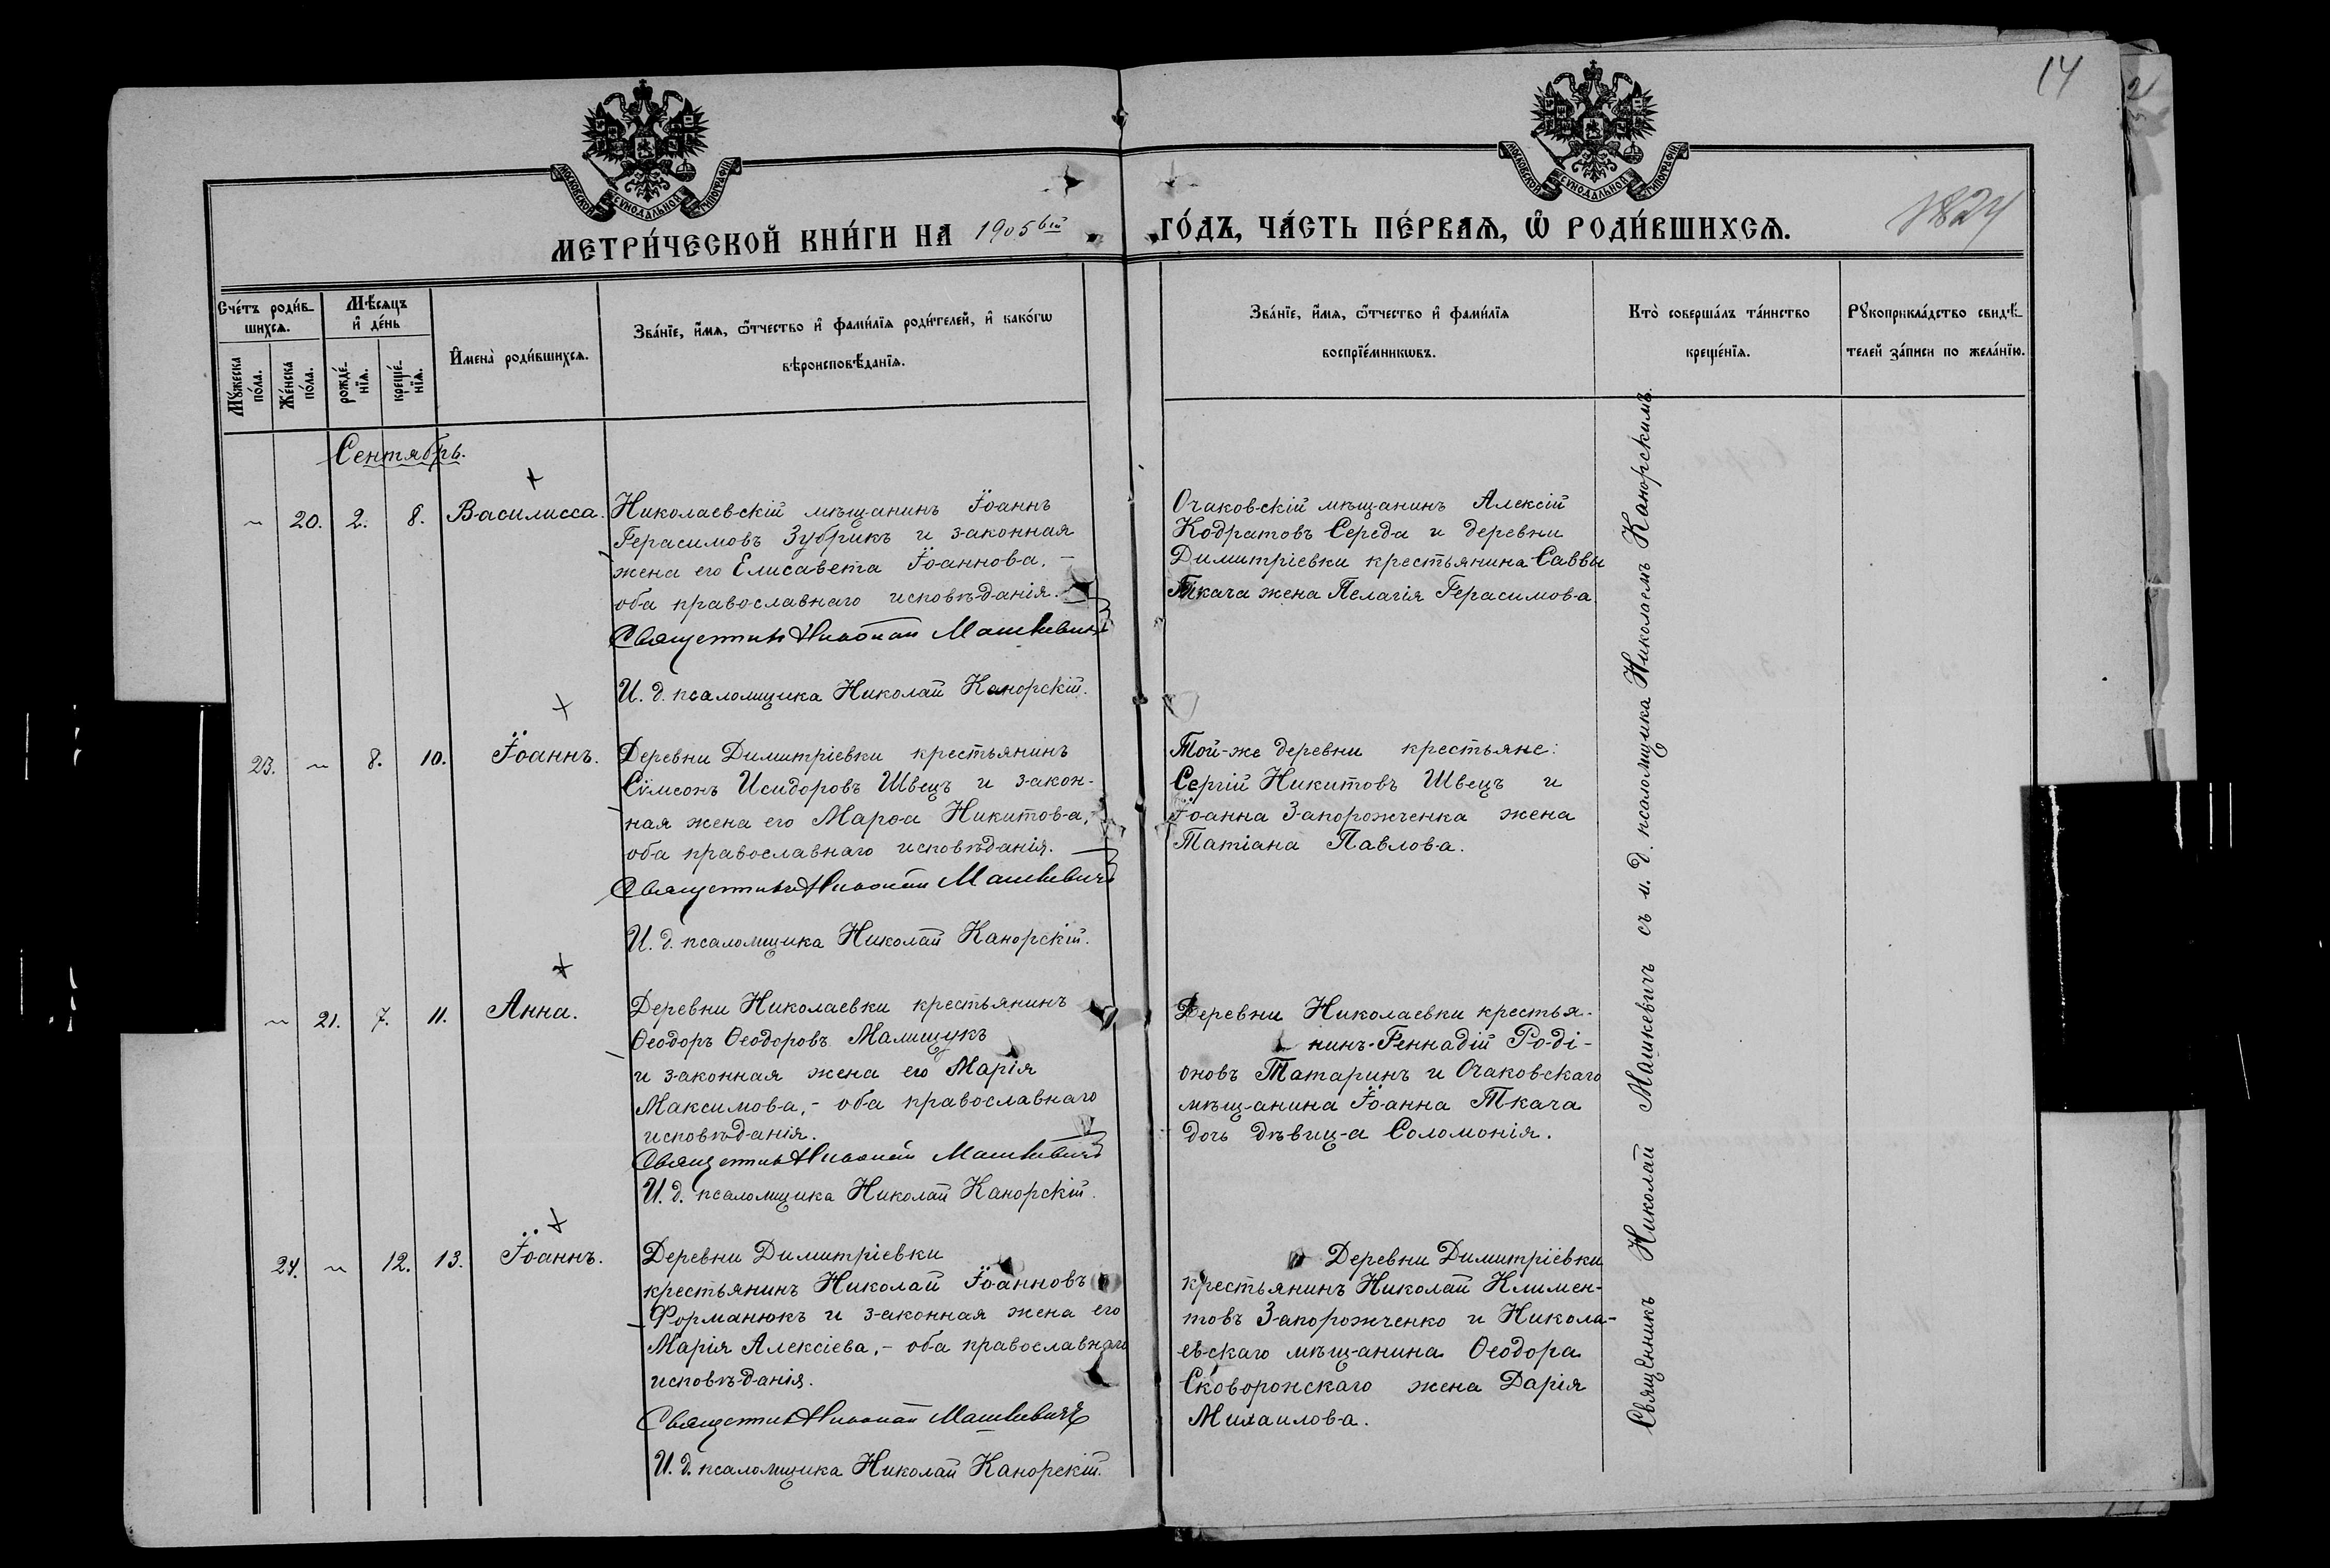 14
МОСКОВСКОЙ СѴНОДАЛЬНОЙ ТИПОГРАФІИ
МОСКОВСКОЙ СѴНОДАЛЬНОЙ ТИПОГРАФІИ
МЕТРИ́ЧЕСКОЙ КНИ́ГИ НА 1905ый ГО́ДЪ, ЧА́СТЬ ПЕ́РВАѦ, Ѽ РОДИ́ВШИХСѦ.
Сче́тъ роди́в-
шихсѧ.
Мꙋ́жеска
по́ла.
Же́нска
по́ла.
Мѣ́сѧцъ
и҆ де́нь
рожде́-
нїѧ.
креще́-
нїѧ.
И҆мена̀ роди́вшихсѧ.
Зва́нїе, и҆́мѧ, ѻ҆́тчество и҆ фами́лїѧ роди́телей, и҆ како́гѡ
вѣроисповѣ́данїѧ.
Зва́нїе, и҆́мѧ, ѻ҆́тчество и҆ фами́лїѧ
воспрїе́мникѡвъ.
Кто̀ соверша́лъ та́инство
креще́нїѧ.
Рꙋкоприкла́дство свидѣ́-
телей за́писи по жела́нїю.
Сентябрь.
~ 20. 2. 8. Василисса.
Николаевскій мѣщанинъ Іоаннъ
Герасимовъ Зубрикъ и законная
жена его Елисавета Іоаннова, –
оба православнаго исповѣданія.
Священникъ Николай Машкевичъ
И. д. псаломщика Николай Канорскій.
Очаковскій мѣщанинъ Алексій
Кодратовъ Середа и деревни
Димитріевки крестьянина Саввы
Ткача жена Пелагія Герасимова.
23. ~ 8. 10. Іоаннъ.
Деревни Димитріевки крестьянинъ
Сѵмеонъ Исидоровъ Швецъ и закон-
ная жена его Марѳа Никитова,
оба православнаго исповѣданія.
Священникъ Николай Машкевичъ
И. д. псаломщика Николай Канорскій.
Той-же деревни крестьяне:
Сергій Никитовъ Швецъ и
Іоанна Запорожченка жена
Татіана Павлова.
~ 21. 7. 11. Анна.
Деревни Николаевки крестьянинъ
Ѳеодоръ Ѳеодоровъ Малищукъ
и законная жена его Марія
Максимова, – оба православнаго
исповѣданія.
Священникъ Николай Машкевичъ
И. д. псаломщика Николай Канорскій.
Деревни Николаевки крестья-
нинъ Геннадій Роді-
оновъ Татаринъ и Очаковскаго
мѣщанина Іоанна Ткача
дочь дѣвица Соломонія.
24. ~ 12. 13. Іоаннъ.
Деревни Димитріевки
крестьянинъ Николай Іоанновъ
Форманюкъ и законная жена его
Марія Алексіева, – оба православнаго
исповѣданія.
Священникъ Николай Машкевичъ
И. д. псаломщика Николай Канорскій.
Деревни Димитріевки
крестьянинъ Николай Климен-
товъ Запорожченко и Никола-
евскаго мѣщанина Ѳеодора
Сковорожскаго жена Дарія
Михаилова.
Священникъ Николай Машкевичъ съ и. д. псаломщика Николаемъ Канорскимъ.